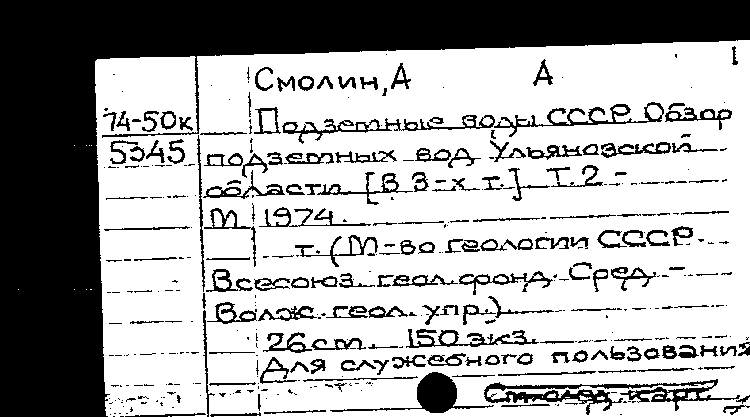 1
Смолин, А А
74-50к Подземные воды СССР. Обзор
5345 подземных вод Ульяновской
области [В 3-х т.] Т.2 -
М 1974.
т. (М-во геологии СССР.
Всесоюз. геол. фонд. Сред. -
Волж. геол. упр.).
26 cm. 150 экз.
Для служебного пользования
См. след. карт.